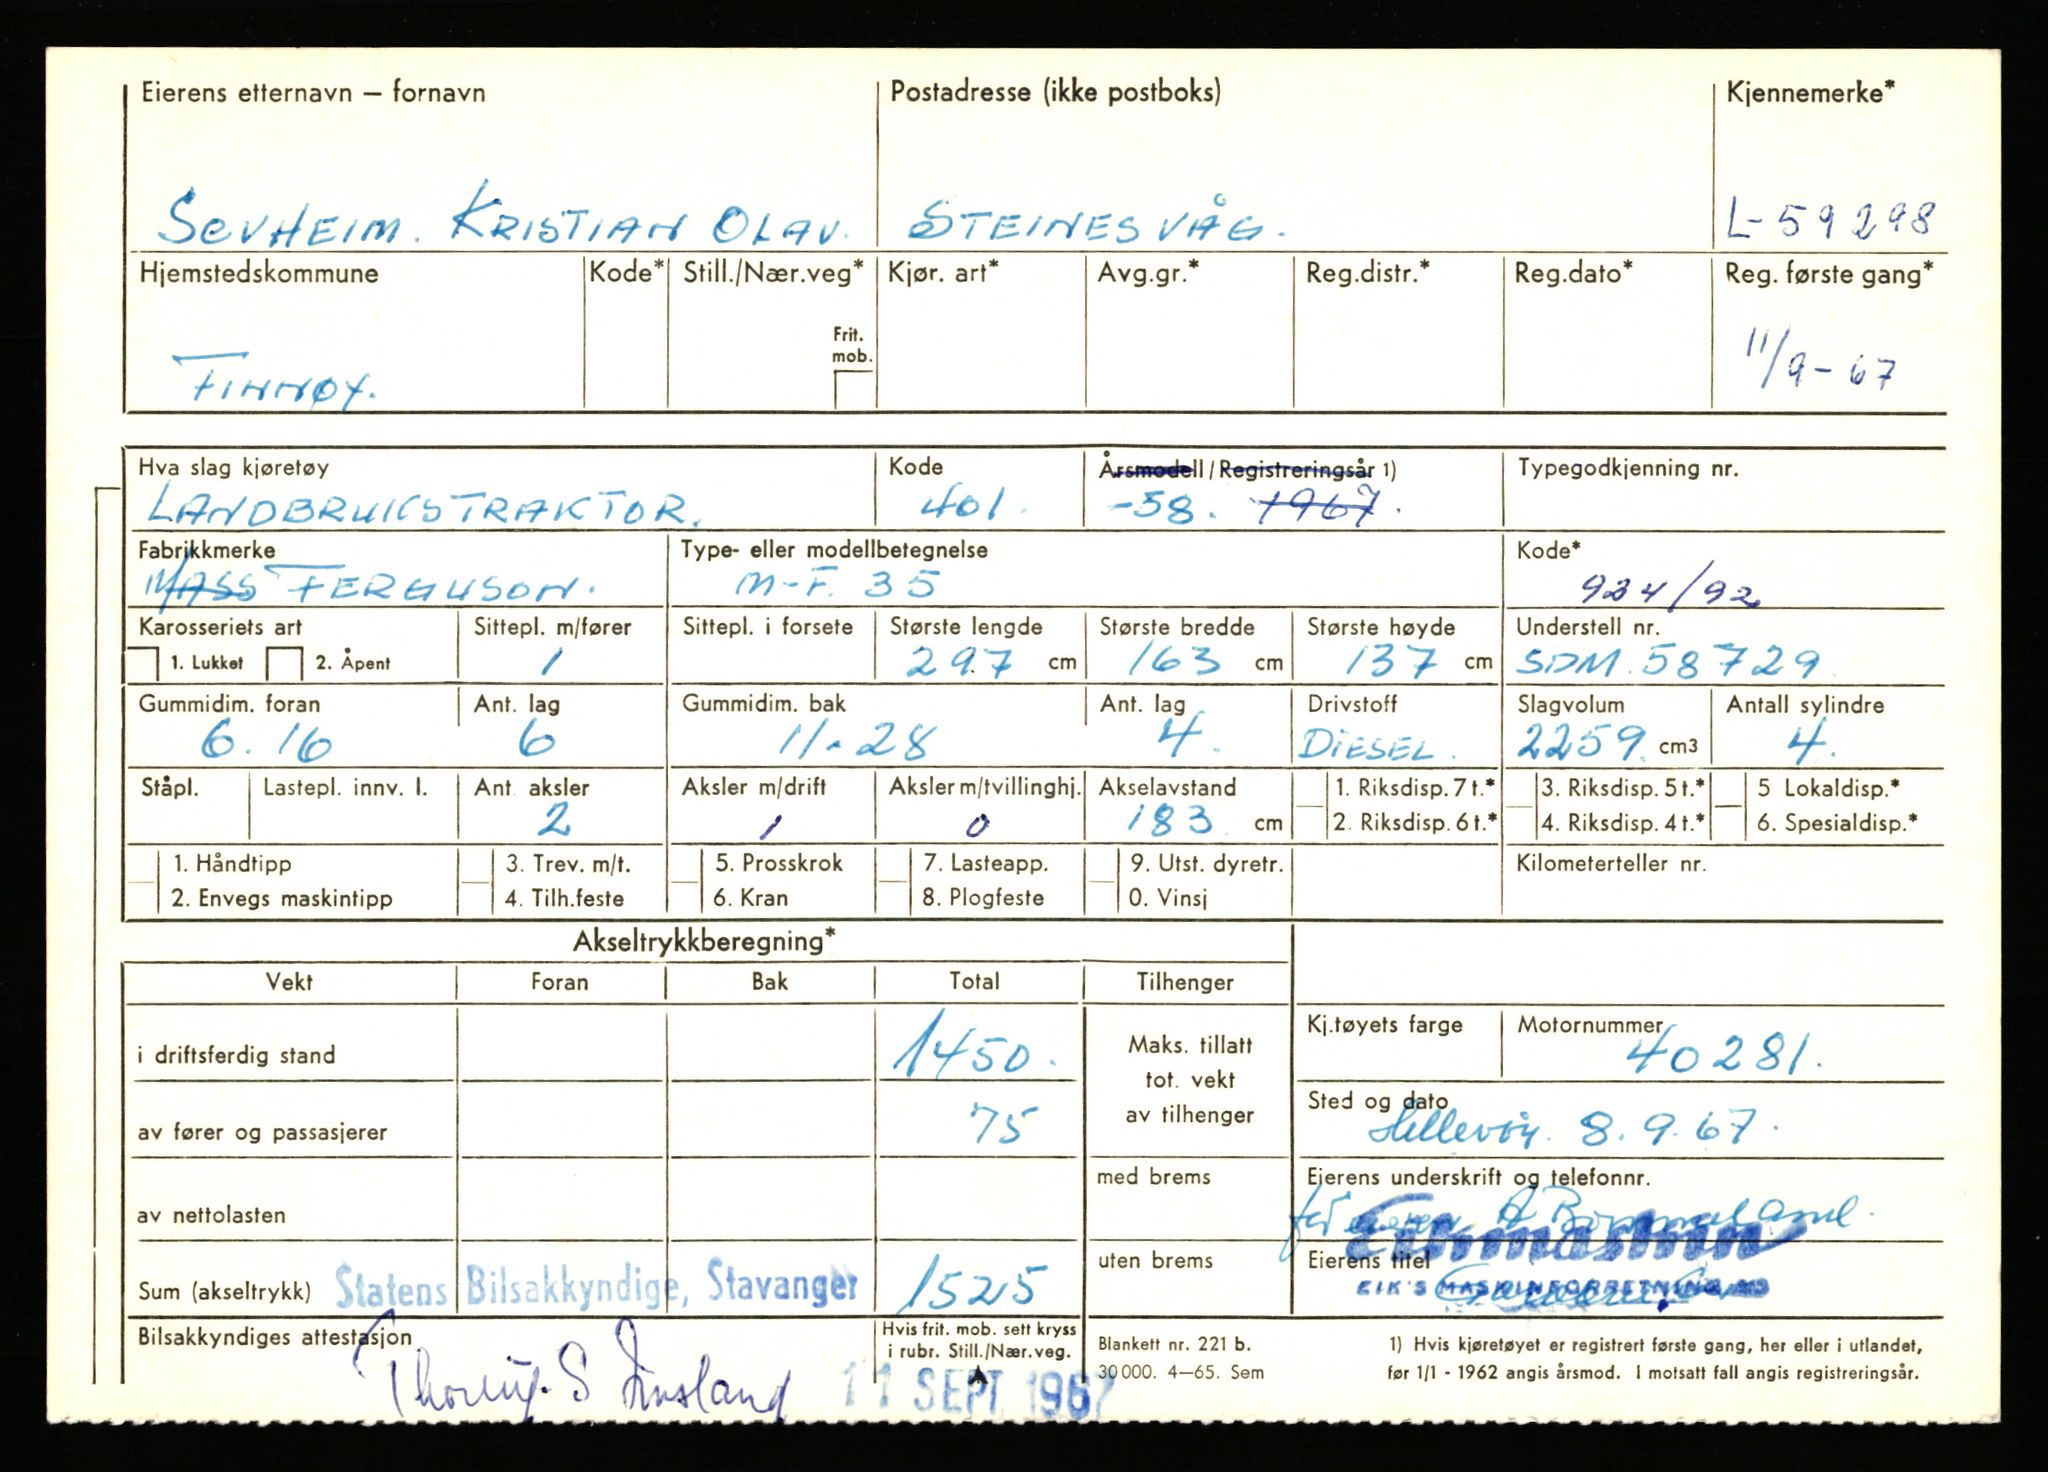 Eierens etternavn – fornavn Postadresse (ikke postboks) Kjennemerke*
SEVHEIM. KRISTIAN OLAV. STEINESVÅG. L-59298
Hjemstedskommune Kode* Still./Nær.veg* Kjør. art* Avg.gr.* Reg.distr.* Reg.dato* Reg. første gang*
Frit.
mob.
FINNØY. 11/9-67
Hva slag kjøretøy Kode Årsmodell / Registreringsår 1) Typegodkjenning nr.
LANDBRUKSTRAKTOR. 401. -58. 1967.
Fabrikkmerke Type- eller modellbetegnelse Kode*
MASS FERGUSON. M-F. 35 934/92
Karosseriets art Sittepl. m/fører Sittepl. i forsete Største lengde Største bredde Største høyde Understell nr.
1. Lukket 2. Åpent 1 297 cm 163 cm 137 cm SDM. 58729
Gummidim. foran Ant. lag Gummidim. bak Ant. lag Drivstoff Slagvolum Antall sylindre
6.16 6 11-28 4. DIESEL. 2259. cm3 4.
Ståpl. Lastepl. innv. l. Ant. aksler Aksler m/drift Aksler m/tvillinghj. Akselavstand 1. Riksdisp. 7 t.* 3. Riksdisp. 5 t.* 5 Lokaldisp.*
2 1 0 183 cm 2. Riksdisp. 6 t.* 4. Riksdisp. 4 t.* 6. Spesialdisp.*
1. Håndtipp 3. Trev. m/t. 5. Prosskrok 7. Lasteapp. 9. Utst. dyretr. Kilometerteller nr.
2. Envegs maskintipp 4. Tilh.feste 6. Kran 8. Plogfeste 0. Vinsj
Akseltrykkberegning*
Vekt Foran Bak Total Tilhenger
i driftsferdig stand 1450. Maks. tillatt
tot. vekt
av tilhenger
Kj.tøyets farge Motornummer
40281.
av fører og passasjerer 75
Sted og dato
Hellevöy. 8.9.67.
med brems Eierens underskrift og telefonnr.
av nettolasten
for eieren A
Eikmaskin
uten brems Eierens titel
EIK'S MASKINFORRETNING
Sum (akseltrykk) Statens Bilsakkyndige, Stavanger 1525
Bilsakkyndiges attestasjon Hvis frit. mob. sett kryss
i rubr. Still./Nær.veg.
S
11 SEPT 1967
Blankett nr. 221 b.
30 000. 4–65. Sem
1) Hvis kjøretøyet er registrert første gang, her eller i utlandet,
før 1/1 - 1962 angis årsmod. I motsatt fall angis registreringsår.